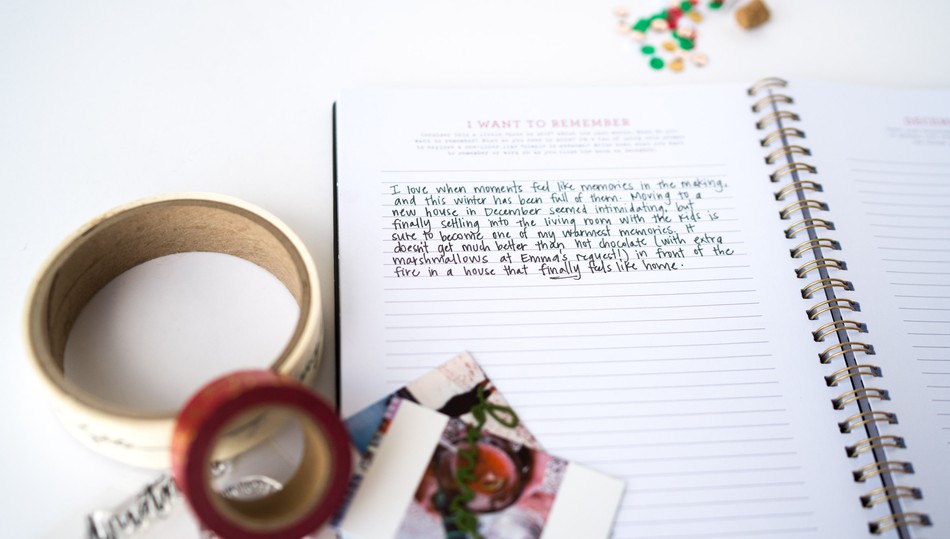 I WANT TO REMEMBER
I love when moments feel like memories in the making,
and this winter has been full of them. Moving to a
new house in December seemed intimidating, but
finally settling into the living room with the kids is
sure to become one of my warmest memories. It
doesn't get much better than hot chocolate (with extra
marshmallows at Emma's request!) in front of the
fire in a house that finally feels like home.